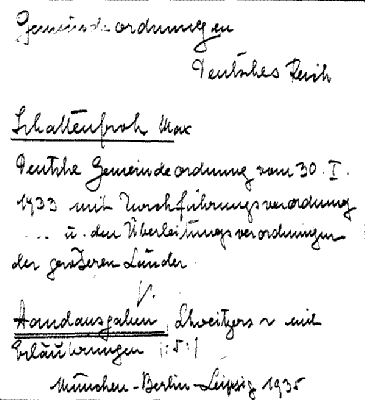 Gemeindeordnungen
Deutsches Reich
Schattenfroh Max
Deutsche Gemeindeordnung vom 30. I.
1933 mit Durchführungsverordnung
... u. den Überleitungsverordnungen
der größeren Länder.
Handausgaben, Schweitzers mit
Erläuterungen |:5:|
München-Berlin-Leipzig 1935